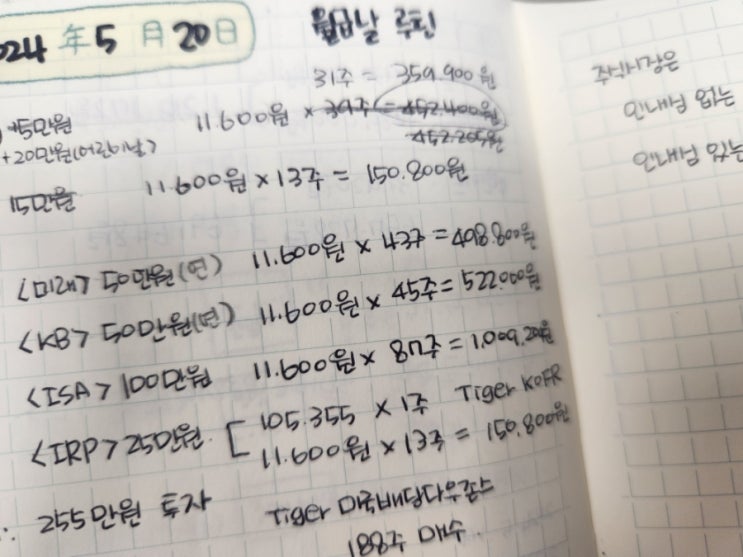 024 年 5 月 20日
월급날 루틴
31주 = 359.900원
+5만원 11.600원 × 39주 = 452.400원
452.205원
+20만원(어린이날)
15만원 11.600원 × 13주 = 150.800원
<미래> 50만원(연) 11.600원 × 43주 = 498.800원
<KB> 50만원(연) 11.600원 × 45주 = 522.000원
<ISA> 100만원 11.600원 × 87주 = 1.009.20원
<IRP> 25만원 [ 105.355 × 1주 Tiger KOFR
11.600원 × 13주 = 150.800원
∴ 255만원 투자
Tiger 미국배당다우존스
188주 매수
주식시장은
인내심 없는
인내심 있는